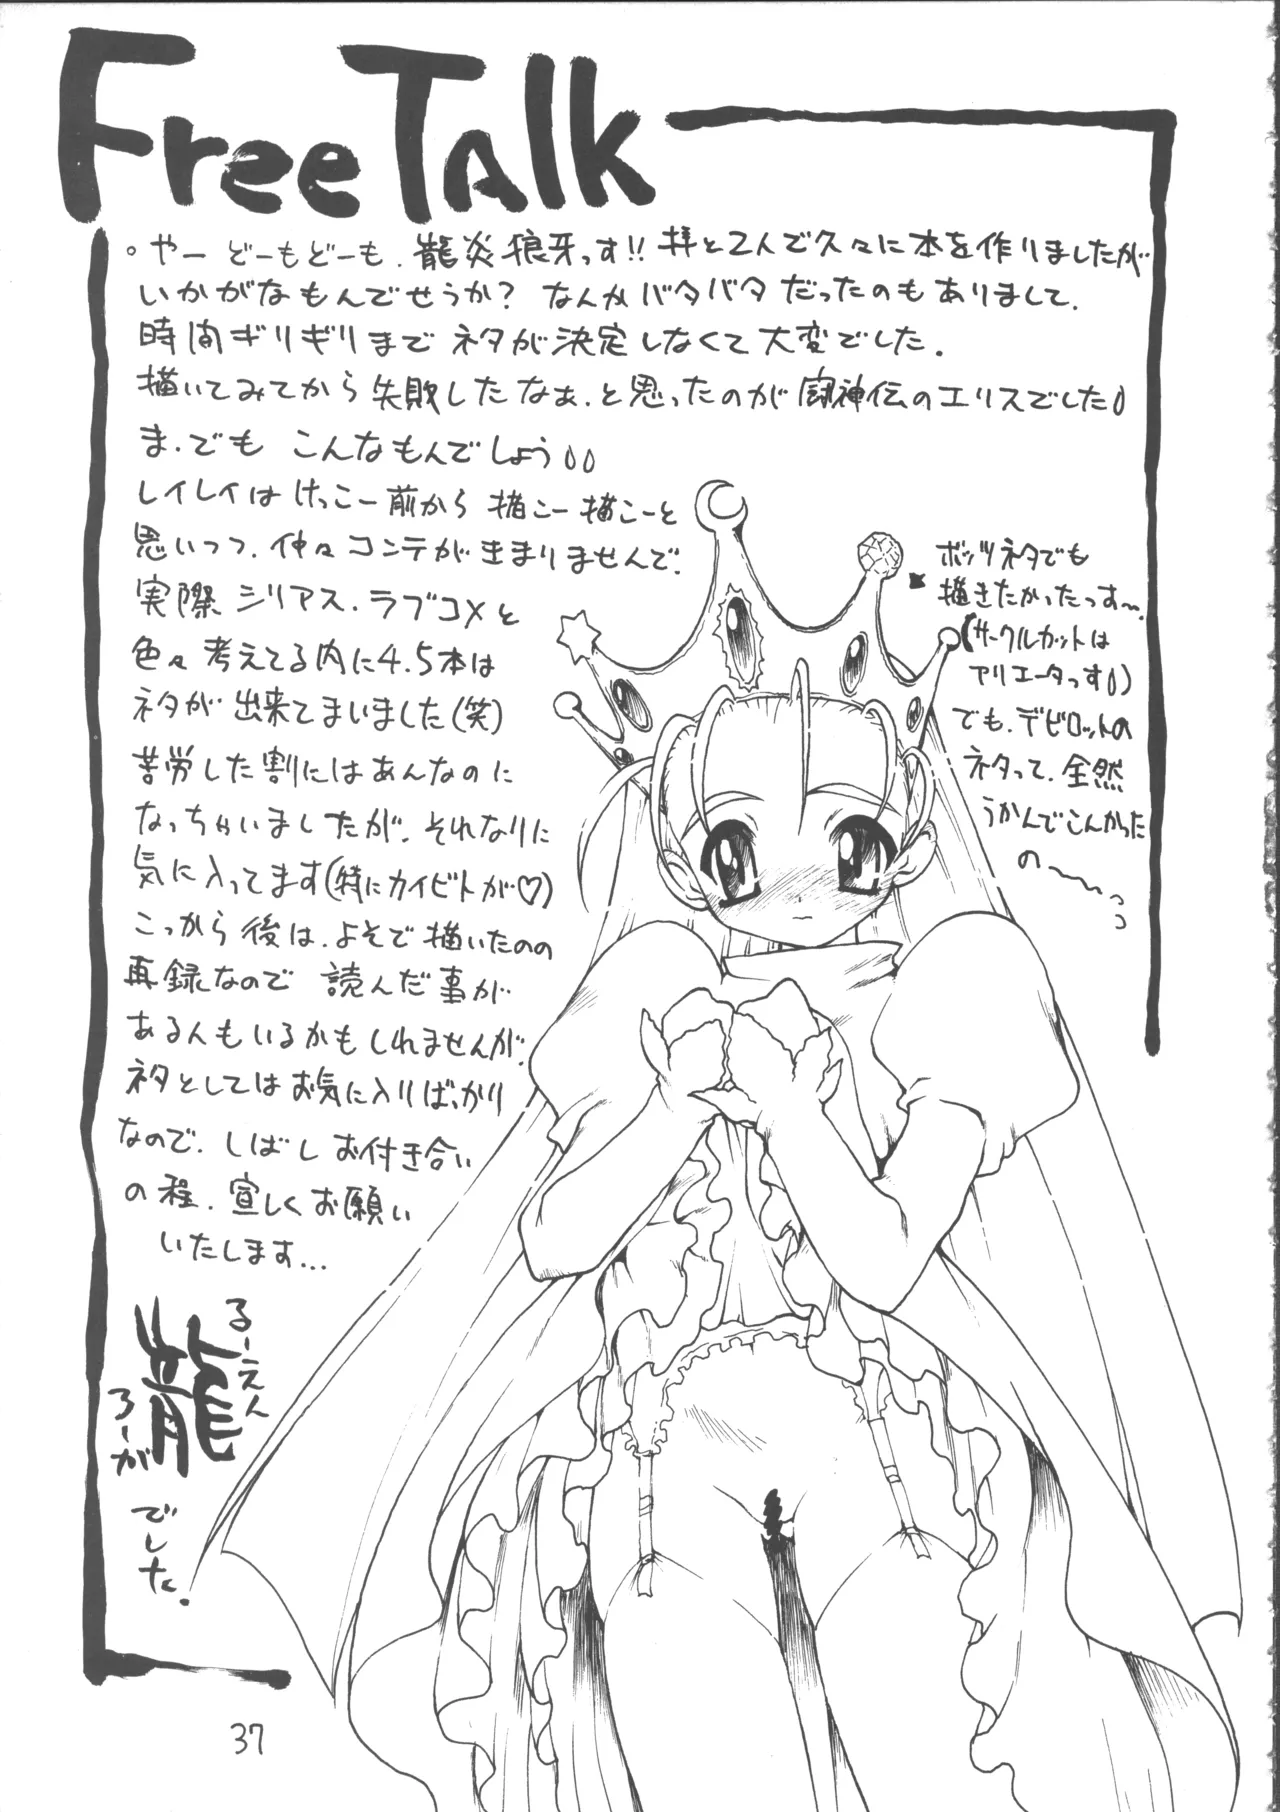 Free Talk
。やー どーもどーも、龍炎狼牙っす!! 拝と2人で久々に本を作りましたが
いかがなもんでせうか? なんかバタバタだったのもありまして、
時間ギリギリまでネタが決定しなくて大変でした。
描いてみてから失敗したなぁ、と思ったのが闘神伝のエリスでした
ま、でも こんなもんでしょう
レイレイはけっこー前から描こー描こーと
思いつつ、仲々コンテがきまりませんで、
実際シリアス、ラブコメと
色々考えてる内に4、5本は
ネタが出来てまいました(笑)
苦労した割にはあんなのに
なっちゃいましたが、それなりに
気に入ってます(特にカイビトが♡)
こっから後は、よそで描いたのの
再録なので 読んだ事が
ある人もいるかもしれませんが、
ネタとしてはお気に入りばっかり
なので、しばしお付き合い
の程、宜しくお願い
いたします...
ボッツネタでも
描きたかったっす〜、
(サークルカットは
アリエータっす)
でも、デビロットの
ネタって、全然
うかんでこんかった
の〜っっ
るーえん
龍
ろーが
でした。
37